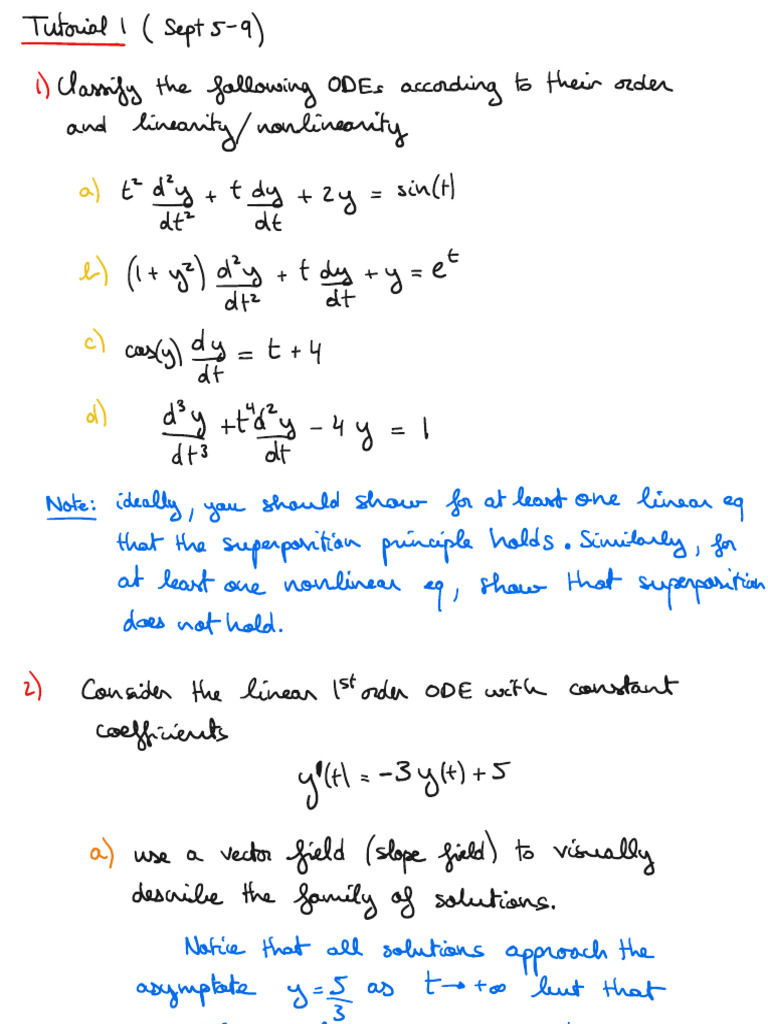 Tutorial 1 ( Sept 5-9)
1) Classify the following ODEs according to their order
and linearity/nonlinearity
a) t² d²y/dt² + t dy/dt + 2y = sin(t)
b) (1 + y²) d²y/dt² + t dy/dt + y = e^t
c) cos(y) dy/dt = t + 4
d) d³y/dt³ + t⁴d²y/dt - 4y = 1
Note: ideally, you should show for at least one linear eq
that the superposition principle holds. Similarly, for
at least one nonlinear eq, show that superposition
does not hold.
2) Consider the linear 1st order ODE with constant
coefficients
y'(t) = -3 y(t) + 5
a) use a vector field (slope field) to visually
describe the family of solutions.
Notice that all solutions approach the
asymptote y = 5/3 as t → +∞ but that